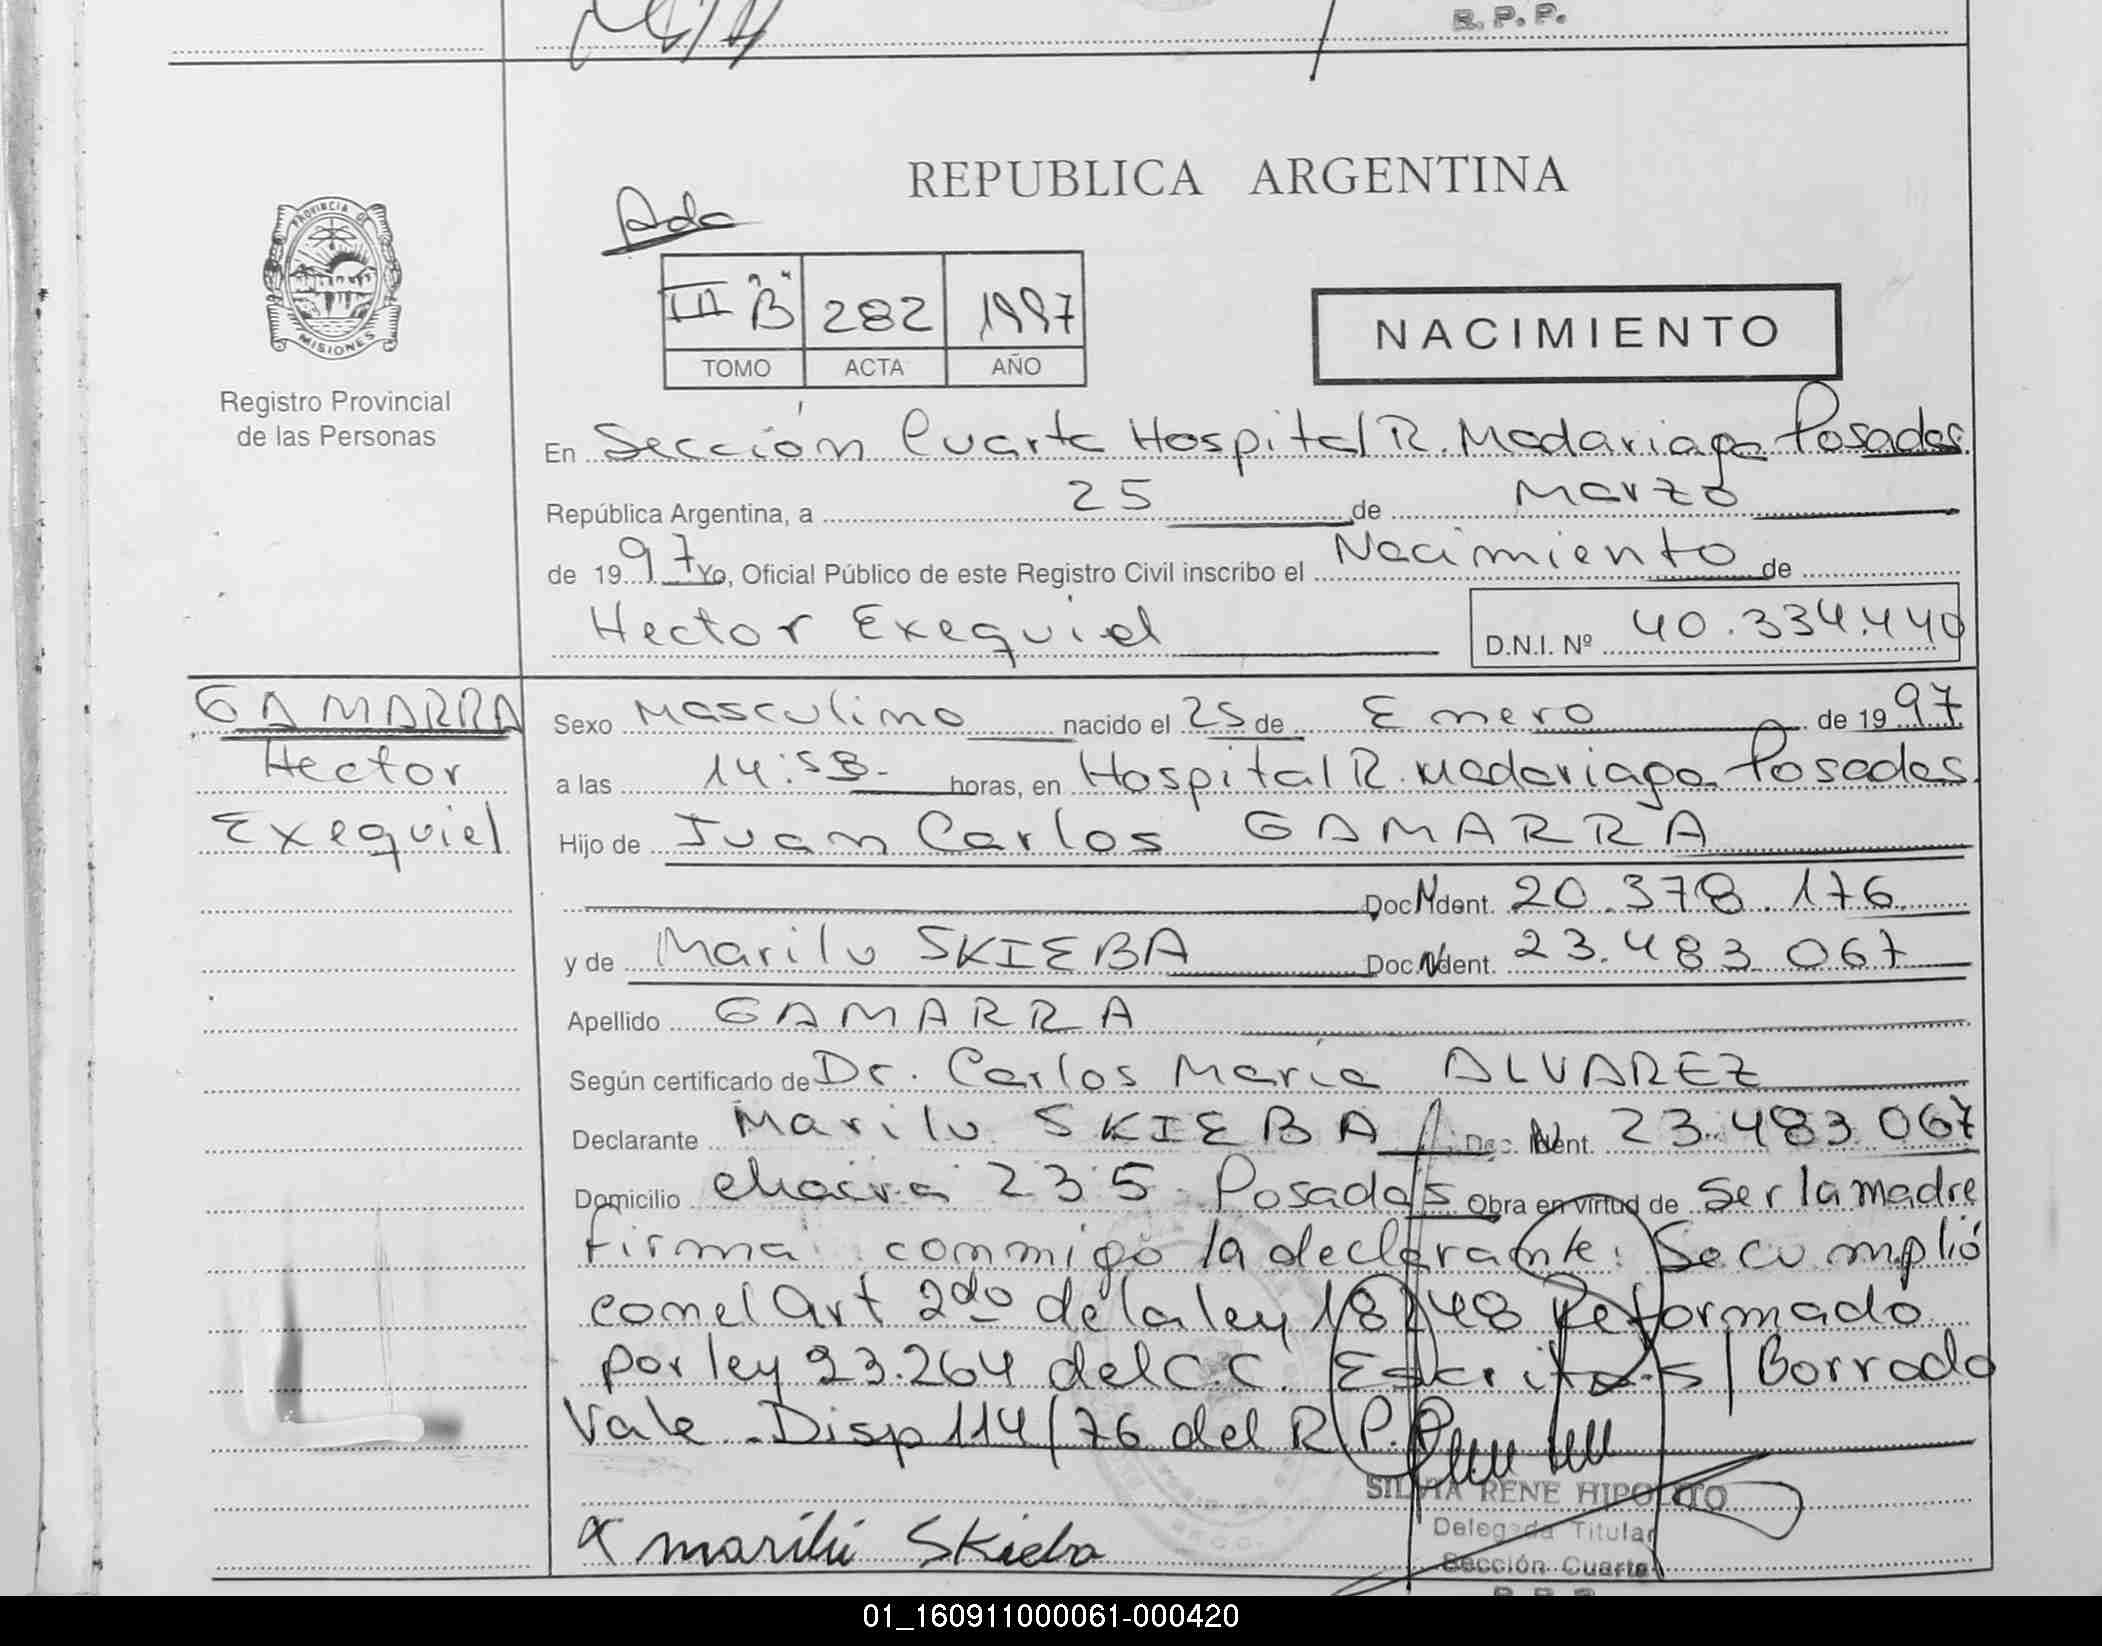 R. P. P.
REPUBLICA ARGENTINA
PROVINCIA DE
MISIONES
Registro Provincial
de las Personas
III "B" 282 1997
TOMO ACTA AÑO
NACIMIENTO
En Sección Cuarta Hospital R. Madariaga Posadas
República Argentina, a 25 de Marzo
de 1997 Yo, Oficial Público de este Registro Civil inscribo el Nacimiento de
Hector Exequiel D.N.I. Nº 40.334.440
GAMARRA
Hector
Exequiel
Sexo Masculino nacido el 25 de Enero de 1997
a las 14:58 horas, en Hospital R. Madariaga Posadas
Hijo de Juan Carlos GAMARRA
Doc. Ident. 20.378.176
y de Marilu SKIEBA Doc. Ident. 23.483.067
Apellido GAMARRA
Según certificado de Dr. Carlos Maria ALVAREZ
Declarante Marilu SKIEBA Doc. Ident. 23.483.067
Domicilio chacra 235 Posadas Obra en virtud de Ser la madre
firma conmigo la declarante. Se cumplió
con el Art 2do de la ley 18248 Reformado
por ley 23.264 del C.C. Escrito s/Borrado
Vale. Disp 114/76 del R.P.P.
SILVIA RENE HIPOLITO
Delegada Titular
Sección Cuarta
R. P. P.
x marilú Skieba
01_160911000061-000420